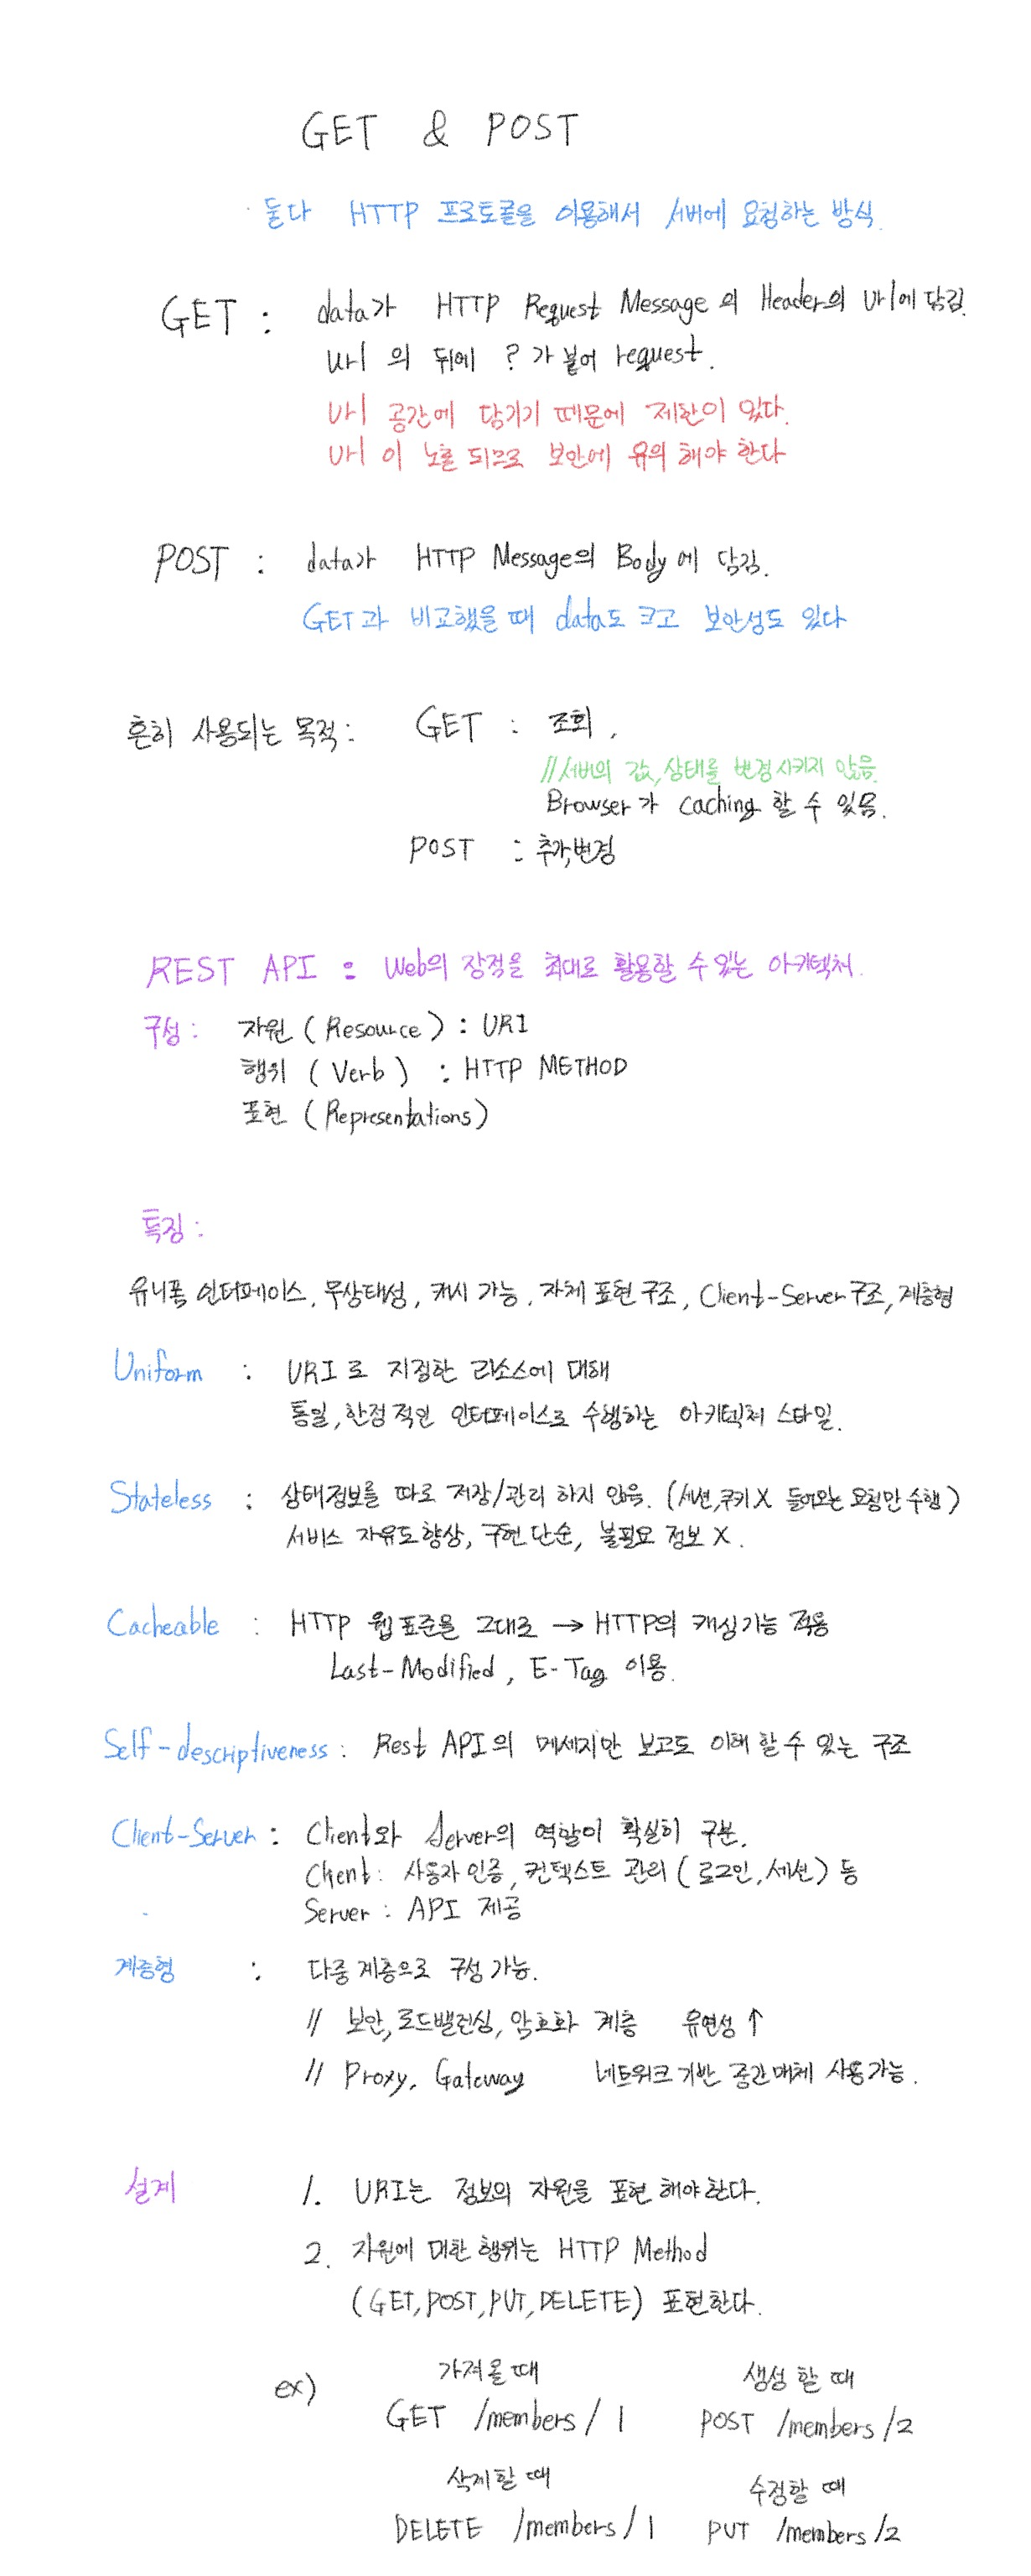 GET & POST
· 둘다 HTTP 프로토콜을 이용해서 서버에 요청하는 방식.
GET : data가 HTTP Request Message의 Header의 url에 담김.
url 의 뒤에 ? 가 붙어 request.
url 공간에 담기기 때문에 제한이 있다.
url 이 노출 되므로 보안에 유의 해야 한다
POST : data가 HTTP Message의 Body에 담김.
GET과 비교했을 때 data도 크고 보안성도 있다
흔히 사용되는 목적 : GET : 조회,
//서버의 값,상태를 변경시키지 않음.
Browser가 caching 할 수 있음.
POST : 추가,변경
REST API : Web의 장점을 최대로 활용할 수 있는 아키텍처.
구성 : 자원 (Resource) : URI
행위 (Verb) : HTTP METHOD
표현 (Representations)
특징 :
유니폼 인터페이스, 무상태성, 캐시 가능, 자체 표현 구조, Client-Server 구조, 계층형
Uniform : URI로 지정한 리소스에 대해
통일, 한정적인 인터페이스로 수행하는 아키텍처 스타일.
Stateless : 상태정보를 따로 저장/관리 하지 않음. (세션,쿠키X 들어오는 요청만 수행)
서비스 자유도 향상, 구현 단순, 불필요 정보 X.
Cacheable : HTTP 웹표준을 그대로 → HTTP의 캐싱기능 적용
Last-Modified, E-Tag 이용.
Self-descriptiveness : Rest API의 메세지만 보고도 이해 할 수 있는 구조
Client-Server : Client와 Server의 역할이 확실히 구분.
Client : 사용자 인증, 컨텍스트 관리 (로그인, 세션) 등
Server : API 제공
계층형 : 다중 계층으로 구성 가능.
// 보안,로드밸런싱, 암호화 계층 유연성 ↑
// Proxy, Gateway 네트워크 기반 중간매체 사용가능.
설계 1. URI는 정보의 자원을 표현 해야한다.
2. 자원에 대한 행위는 HTTP Method
(GET, POST, PUT, DELETE) 표현한다.
ex) 가져올 때 생성 할 때
GET /members/1 POST /members/2
삭제할 때 수정할 때
DELETE /members/1 PUT /members/2